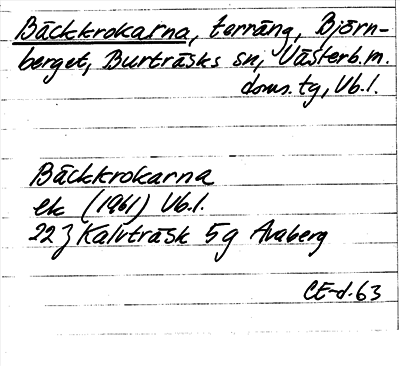 Bäckkrokarna, terräng, Björn-
berget, Burträsks sn, Västerb.m.
doms.tg, Vb.l.
Bäckkrokarna
ek (1961) Vb.l.
22 J Kalvträsk 5g Avaberg
CE-d.63